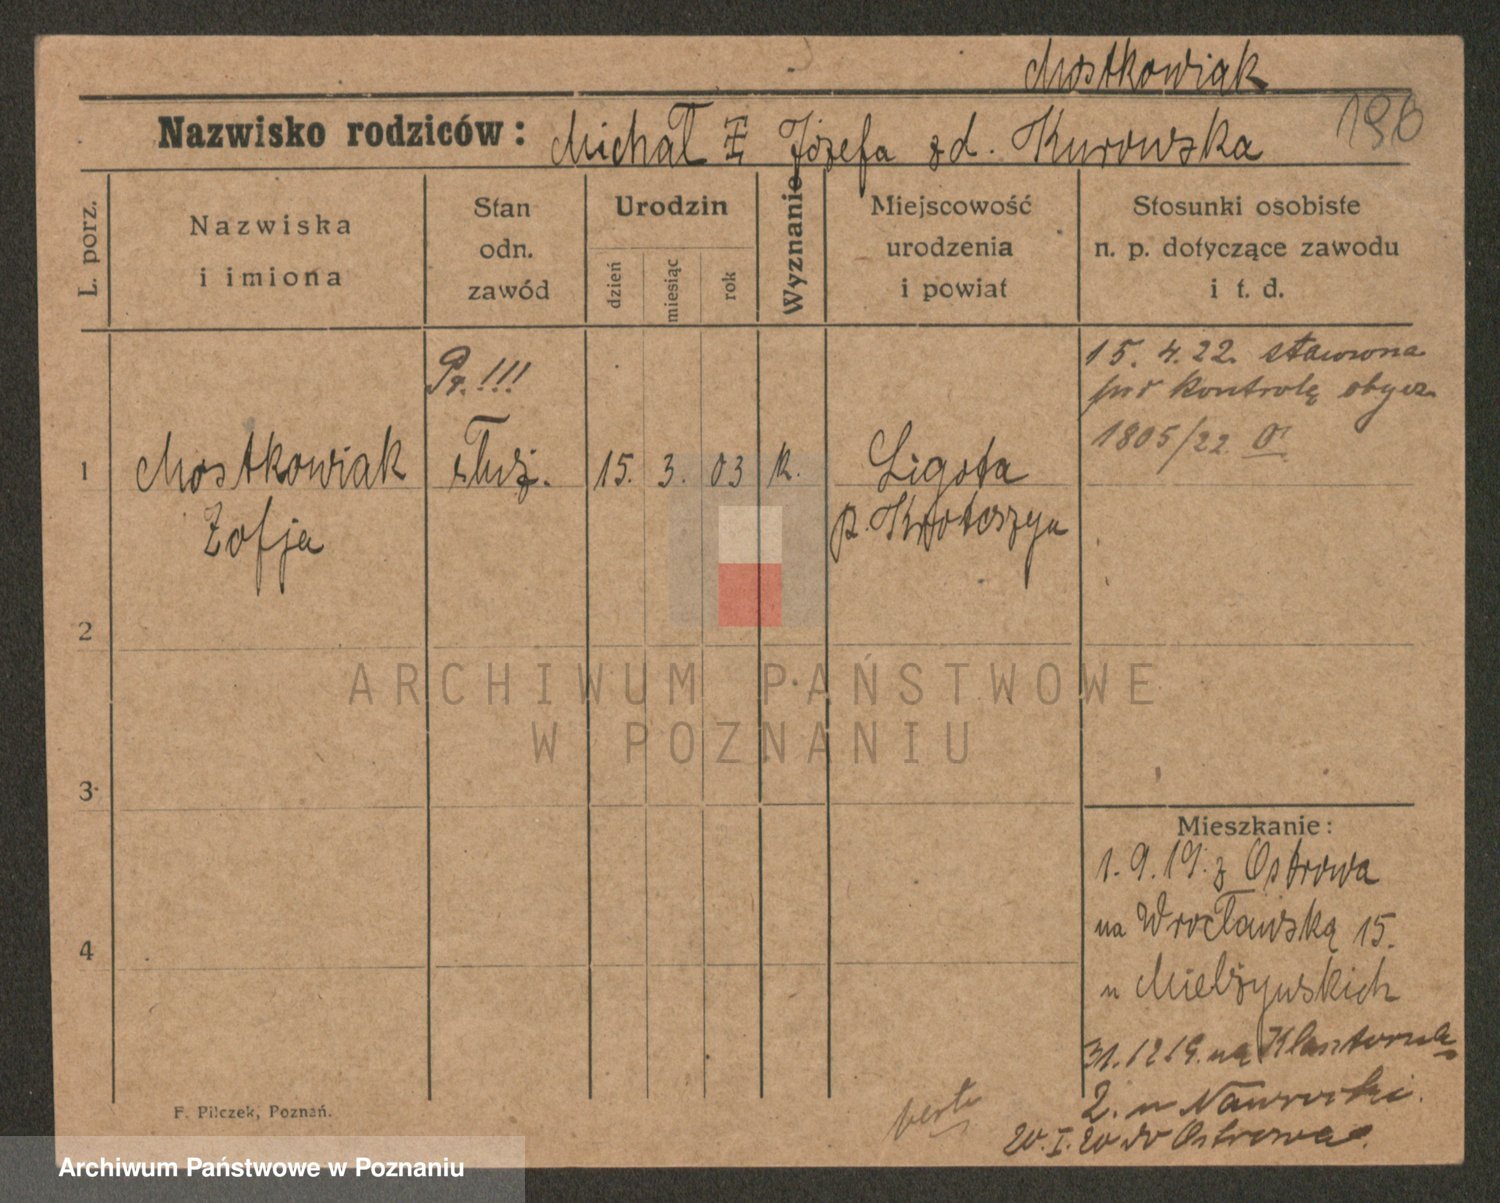 Mostkowiak
Nazwisko rodziców: Michał i Józefa zd. Kurowska
190
L. porz.
Nazwiska
i imiona
Stan
odn.
zawód
Urodzin
dzień
miesiąc
rok
Wyznanie
Miejscowość
urodzenia
i powiat
Stosunki osobiste
n. p. dotyczące zawodu
i t. d.
Pr. !!!
15. 4. 22. stawiona
pod kontrolę obycz.
1805/22
1 Mostkowiak służ. 15. 3. 03 k. Ligota
Zofja p. Krotoszyn
2
3
4
ARCHIWUM PAŃSTWOWE
W POZNANIU
Mieszkanie:
1.9.19. z Ostrowa
na Wrocławską 15.
u Mielżyńskich
31.12 19. na
2. u Nawrocki.
20.I.20 do Ostrowa.
verte
F. Pilczek, Poznań.
Archiwum Państwowe w Poznaniu